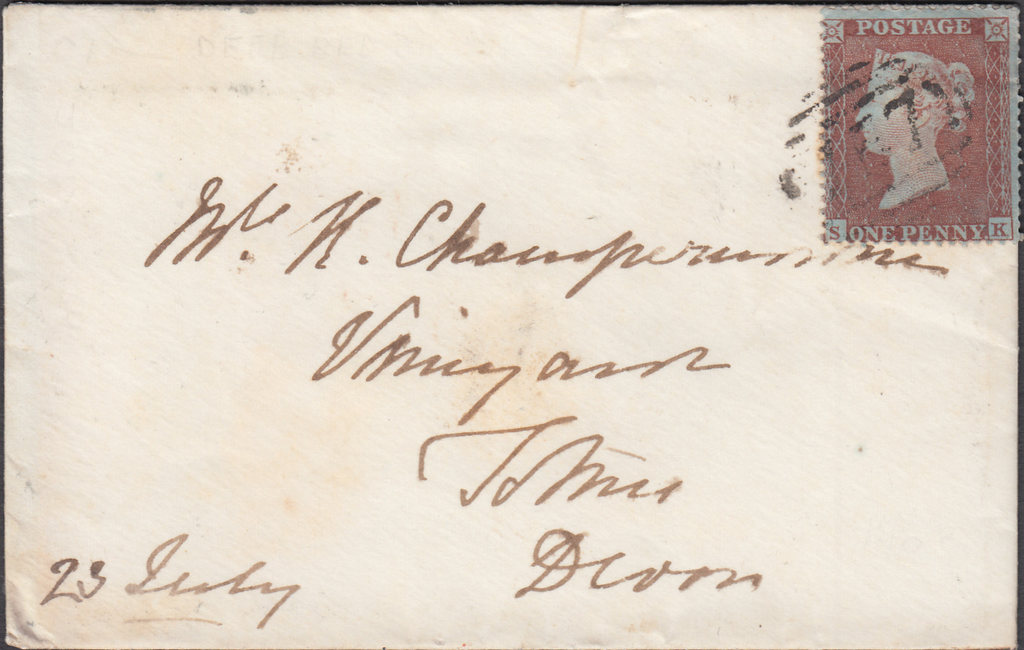 POSTAGE
S ONE PENNY K
Mr. H. Champernowne
Vineyard
Totnes
Devon
23 July